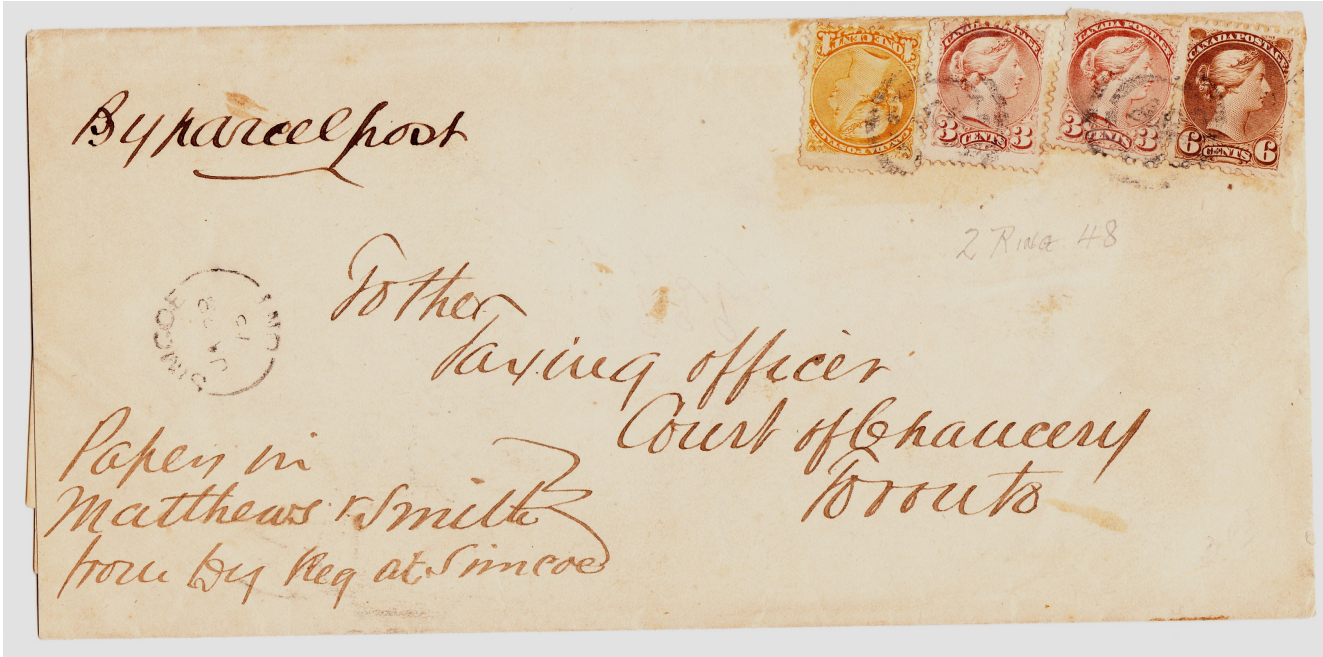 By parcel post
ONE CENT
CANADA POSTAGE
CANADA POSTAGE
3 CENTS 3
CANADA POSTAGE
3 CENTS 3
CANADA POSTAGE
6 CENTS 6
2 RING 48
SIMCOE
To the
Taxing officer
Court of Chancery
Toronto
Papers in
Matthews v Smith
from Dy Reg at Simcoe